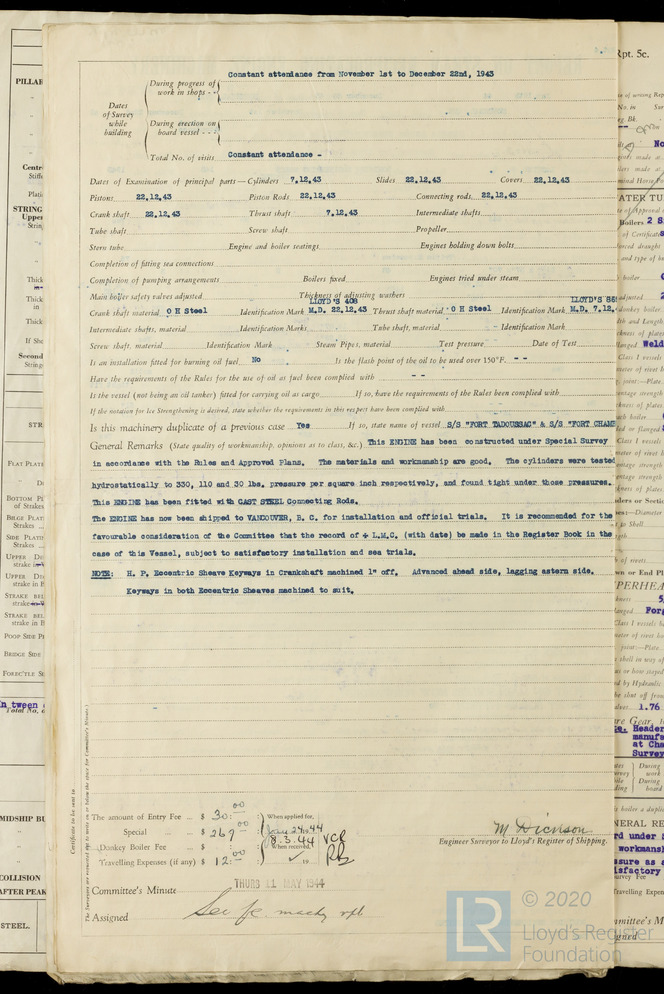 Constant attendance from November 1st to December 22nd, 1943
During progress of work in shops - -
Dates of Survey while building
During erection on board vessel - - -
Total No. of visits Constant attendance -
Dates of Examination of principal parts—Cylinders 7.12.43 Slides 22.12.43 Covers 22.12.43
Pistons 22.12.43 Piston Rods 22.12.43 Connecting rods 22.12.43
Crank shaft 22.12.43 Thrust shaft 7.12.43 Intermediate shafts
Tube shaft Screw shaft Propeller
Stern tube Engine and boiler seatings Engines holding down bolts
Completion of fitting sea connections
Completion of pumping arrangements Boilers fixed Engines tried under steam
Main boiler safety valves adjusted Thickness of adjusting washers
LLOYD'S 408 LLOYD'S
Crank shaft material O H Steel Identification Mark M.D. 22.12.43 Thrust shaft material O H Steel Identification Mark M.D. 7.12.
Intermediate shafts, material Identification Marks Tube shaft, material Identification Mark
Screw shaft, material Identification Mark Steam Pipes, material Test pressure Date of Test
Is an installation fitted for burning oil fuel No Is the flash point of the oil to be used over 150°F. - -
Have the requirements of the Rules for the use of oil as fuel been complied with - -
Is the vessel (not being an oil tanker) fitted for carrying oil as cargo If so, have the requirements of the Rules been complied with
If the notation for Ice Strengthening is desired, state whether the requirements in this respect have been complied with
Is this machinery duplicate of a previous case Yes If so, state name of vessel S/S "FORT TADOUSSAC" & S/S "FORT CHAM
General Remarks (State quality of workmanship, opinions as to class, &c.) This ENGINE has been constructed under Special Survey
in accordance with the Rules and Approved Plans. The materials and workmanship are good. The cylinders were tested
hydrostatically to 330, 110 and 30 lbs. pressure per square inch respectively, and found tight under those pressures.
This ENGINE has been fitted with CAST STEEL Connecting Rods.
The ENGINE has now been shipped to VANCOUVER, B. C. for installation and official trials. It is recommended for the
favourable consideration of the Committee that the record of + L.M.C. (with date) be made in the Register Book in the
case of this Vessel, subject to satisfactory installation and sea trials.
NOTE: H. P. Eccentric Sheave Keyways in Crankshaft machined 1" off. Advanced ahead side, lagging astern side.
Keyways in both Eccentric Sheaves machined to suit.
The amount of Entry Fee ... $ 30:00 When applied for,
Special ... $ 267:00 Jan 24 1944
Donkey Boiler Fee ... $ : 8.3.44 VCR
When received,
Travelling Expenses (if any) $ 12:00 19
M Dickson
Engineer Surveyor to Lloyd's Register of Shipping.
Committee's Minute THURS 11 MAY 1944
Assigned See fc. machy rpt
Certificate to be sent to
© 2020
LR
Lloyd's Register
Foundation
Rpt. 5c.